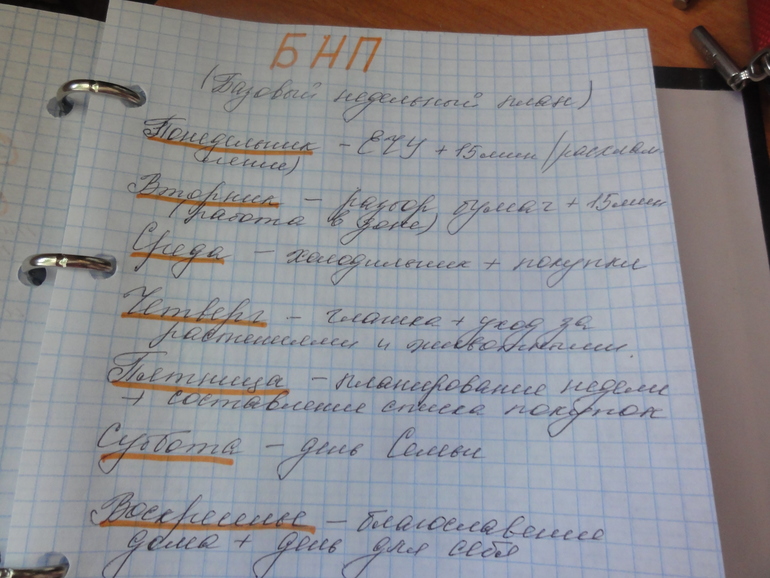 БНП
(Базовый недельный план)
Понедельник - ЕЧУ + 15 мин (расхлам
ление)
Вторник - разбор бумаг + 15 мин
(работа в зоне)
Среда - холодильник + покупки
Четверг - глашка + уход за
растениями и животными.
Пятница - планирование недели
+ составление списка покупок
Суббота - день Семьи
Воскресенье - благославение
дома + день для себя